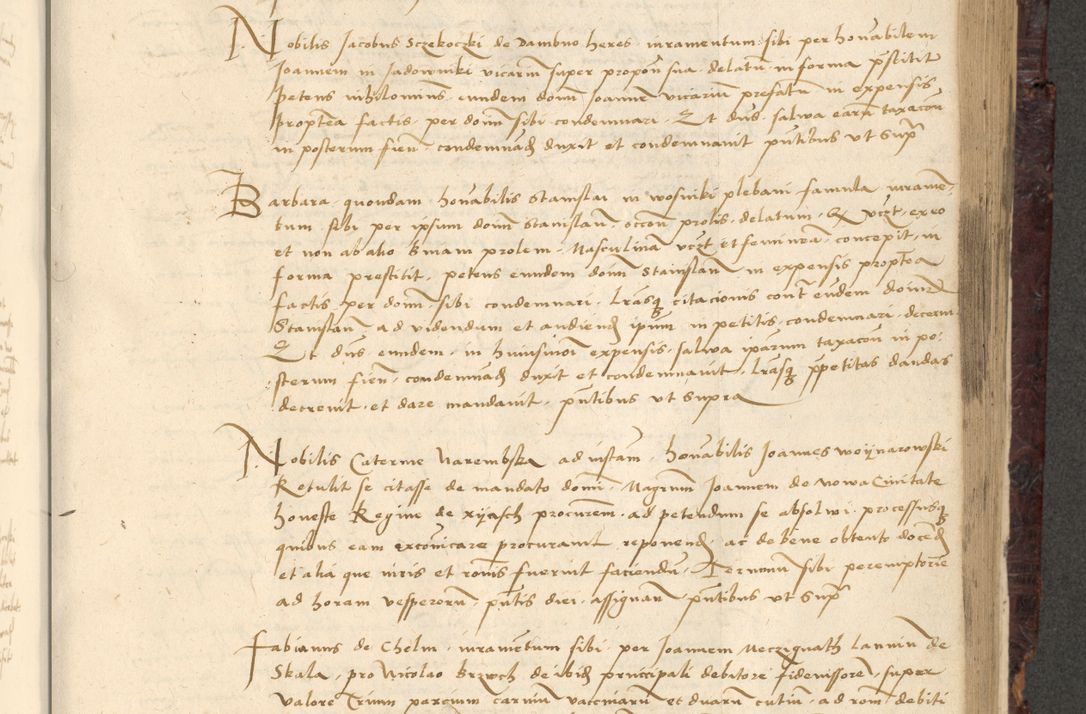 Nobilis Jacobus Sczekoczki de Dambno heres iuramentum sibi per honabilem
Joannem in Jadowniki vicariũ super propoñ sua delatũ in forma p̃stitit
petens nihilominus eundem domĩ Joanẽ vicariũ prefatũ in expensis
propterea factis per domĩ sibi condemnari. Et dũs salwa earũ taxacoñ
in posterum fieñ condemnañd duxit et condemnauit pñtibus vt Supˀ
Barbara quondam honabilis Stanislai in wosniki plebani famula iuramẽ
tum sibi per ipsum domĩ Stanislaũ occoñ prolis delatum Q vczt ex eo
et non ab alio binam prolem Masculinã vczt et femineã concepit in
forma prestitit petens eundem domĩ Stanislaũ in expensis proptea
factis per domĩ sibi condemnari lrãsq citacionis cont̃ eũdem domĩ
Stanislaũ ad videndum et audieñd ipũm in petitis condemnari decerni
Et dũs eundem in huiusmoĩ expensis salwa iparum taxacoñ in po
sterum fieñ condemnañd duxit et condemnauit lrãsq p̃petitas dandas
decreuit et dare mandauit pñtibus vt Supra
Nobilis Caterine Narembska ad instam honabilis Joannes woijnarowski
Retulit se citasse de mandato domĩ Magrum Joannem de Nowa Ciuitate
honeste Regine de xijasch procurem ad petendum se absolwi processusq
quibus eam excoñicare procurauit reponeñd ac de bene obtento doceñd
et alia que iuris et roñis fuerint faciendũ Terminũ sibi peremptorie
ad horam vesperorũ pñtis diei assignañ pñtibus vt Supˀ
Fabianus de Chelm iuramentum sibi per Joannem Meczignath laniũ de
Skala pro Nicolao Brzoch de ibiđ principali debitore fideiussorẽ super
valore Trium parcium carniũ vaccinarũ et duarũ cutiũ ad roñ debiti